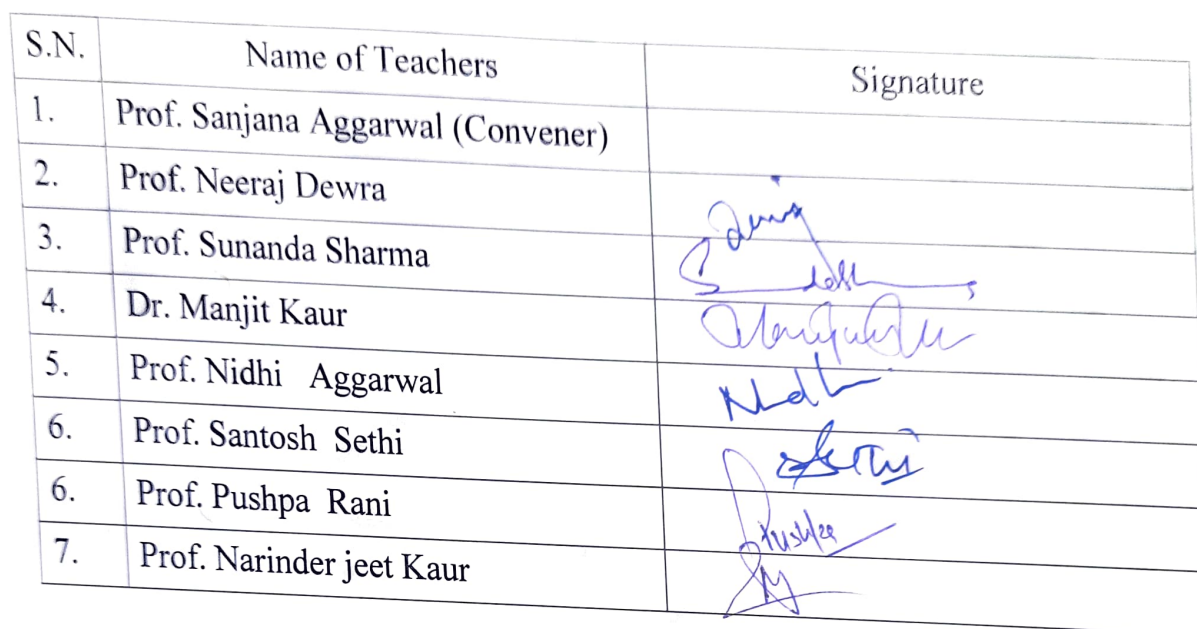 S.N. Name of Teachers Signature
1. Prof. Sanjana Aggarwal (Convener)
2. Prof. Neeraj Dewra
3. Prof. Sunanda Sharma
4. Dr. Manjit Kaur
5. Prof. Nidhi Aggarwal Nidhi
6. Prof. Santosh Sethi
6. Prof. Pushpa Rani Pushpa
7. Prof. Narinder jeet Kaur